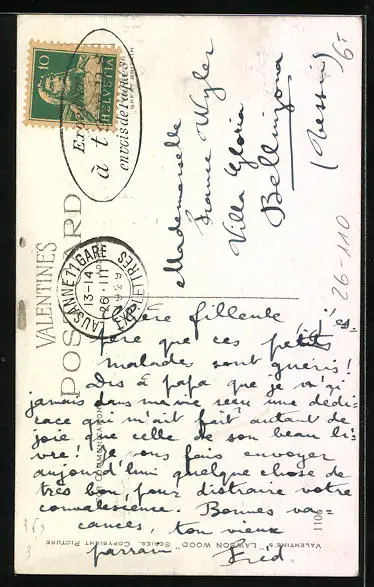 10
HELVETIA
envois de Paques
à t
VALENTINES
POSTCARD
LAUSANNE 11 GARE
EXP. LETTRES
13-14
26·III
1929
Mademoiselle
France Wyler
Villa Gloria
Bellinzona
(Tessin)
6-
26-110
Chère filleule, j'es-
père que ces petits
malades sont guéris!
Dis à papa que je n'ai
jamais dans ma vie reçu une dédi-
cace qui m'ait fait autant de
joie que celle de son beau li-
vre! Je vous fais envoyer
aujourd'hui quelque chose de
très bon, pour distraire votre
convalescence. Bonnes va-
cances, ton vieux
parrain Fred.
COMMUNICATION
1106
VALENTINE'S "LAWSON WOOD" SERIES. COPYRIGHT PICTURE